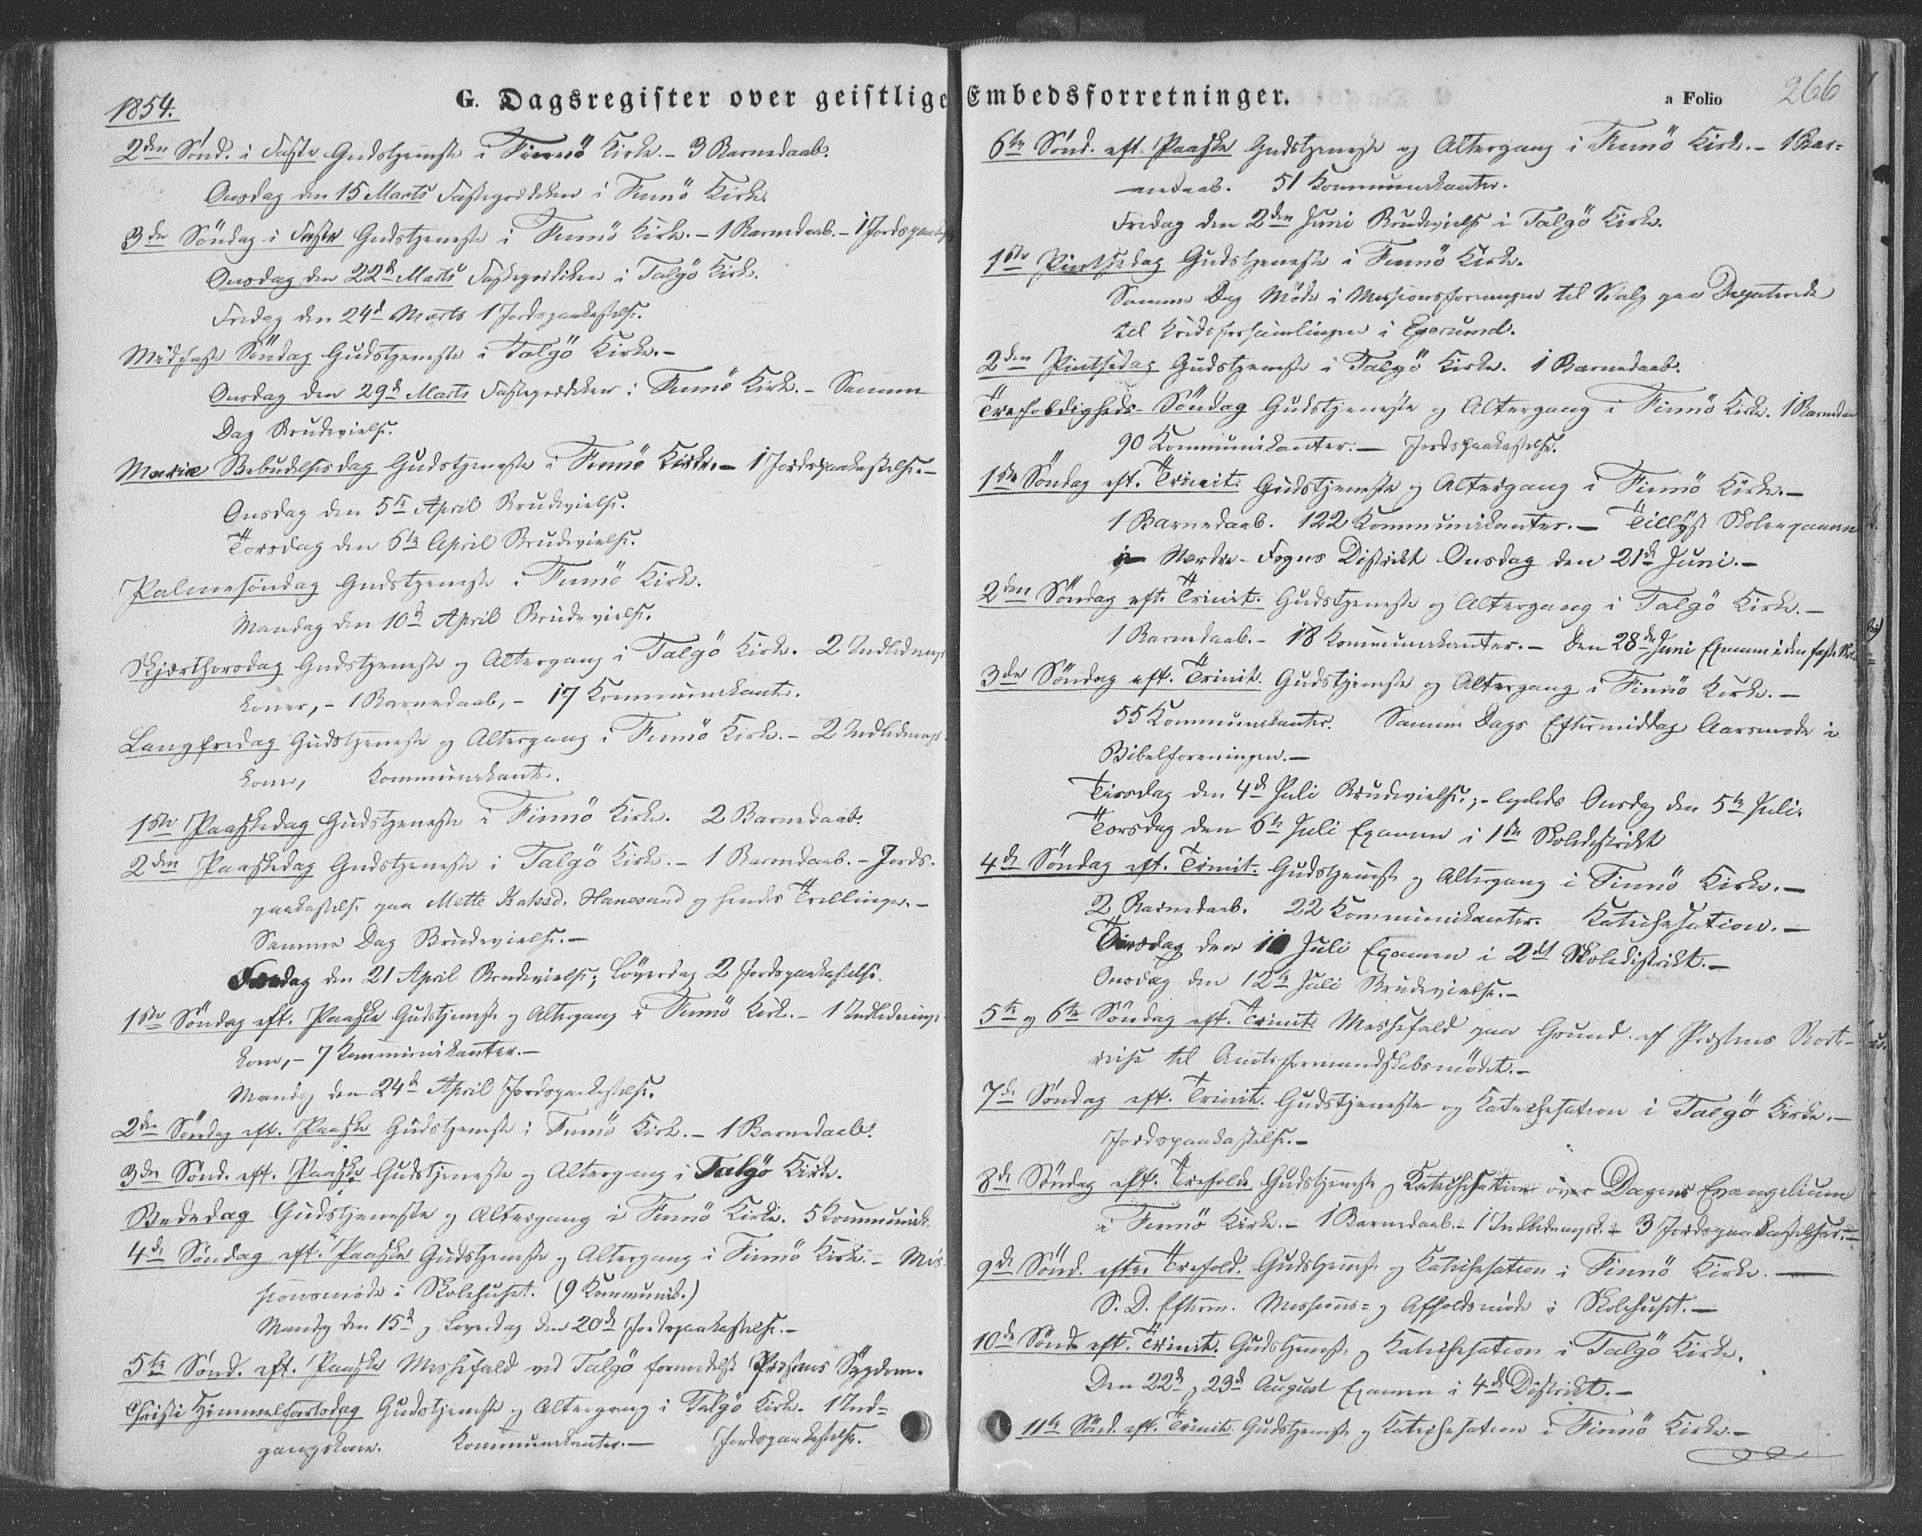 1854.
G. Dagsregister over geistlige Embedsforretninger.
a Folio 266
2den Sönd. i Faste Gudstjeneste i Finnö Kirke. - 3 Barnedaab.
Onsdag den 15 Marts Fasteprædiken i Finnö Kirke.
3die Söndag i Faste Gudstjeneste i Finnö Kirke. - 1 Barnedaab. - 1 Jordspaakast
Onsdag den 22d Marts Fasteprædiken i Talgö Kirke.
Fredag den 24d Marts 1 Jordspaakastelse.
Midfaste Söndag Gudstjeneste i Talgö Kirke. -
Onsdag den 29d Marts Fasteprædiken i Finnö Kirke. - Samme
Dag Brudevielse.
Mariæ Bebudelsesdag Gudstjeneste i Finnö Kirke. - 1 Jordspaakastelse. -
Onsdag den 5te April Brudevielse.
Torsdag den 6te April Brudevielse.
Palmesöndag Gudstjeneste i Finnö Kirke.
Mandag den 10d April Brudevielse.
Skjærthorsdag Gudstjeneste og Altergang i Talgö Kirke. - 2 Indlednings
koner, - 1 Barnedaab, - 17 Kommunikanter.
Langfredag Gudstjeneste og Altergang i Finnö Kirke. - 2 Indlednings
koner, Kommunikanter.
1ste Paaskedag Gudstjeneste i Finnö Kirke. 2 Barnedaab.
2den Paaskedag Gudstjeneste i Talgö Kirke. - 1 Barnedaab. - Jords-
paakastelse paa Mette Hanesand og hendes Trillinger. -
Samme Dag Brudevielse. -
Fredag den 21 April Brudevielse; Löverdag 2 Jordspaakastelse.
1ste Söndag eft. Paaske Gudstjeneste og Altergang i Finnö Kirke. - 1 Indlednings
kone, - 7 Kommunikanter. -
Mandag den 24d April Jordspaakastelse.
2den Söndag eft. Paaske Gudstjeneste i Finnö Kirke. - 1 Barnedaab.
3die Sönd. eft. Paaske Gudstjeneste og Altergang i Talgö Kirke.
Bededag Gudstjeneste og Altergang i Finnö Kirke. 5 Kommunik.
4de Söndag eft. Paaske Gudstjeneste og Altergang i Finnö Kirke. - Mis-
sionsmöde i Skolehuset. (9 Kommunik.)
Mandag den 15d og Löverdag den 20de Jordspaakastelse. -
5te Sönd. eft. Paaske Messefald ved Talgö formedelst Præstens Sygdom.
Christi Himmelfartsdag Gudstjeneste og Altergang i Talgö Kirke. 1 Ind-
gangskone. Kommunikanter. - Jordspaakastelse.
6te Sönd. eft. Paaske Gudstjeneste og Altergang i Finnö Kirke. - 1 Bar-
nedaab. 51 Kommunikanter.
Fredag den 2den Juni Brudevielse i Talgö Kirke.
1ste Pintsedag Gudstjeneste i Finnö Kirke.
Samme Dag Möde i Missionsforeningen til Valg paa Deputerede
til Kredsforsamlingen i Egersund.
2den Pintsedag Gudstjeneste i Talgö Kirke. 1 Barnedaab.
Trefoldigheds-Söndag Gudstjeneste og Altergang i Finnö Kirke. 1 Barnedaa
90 Kommunikanter. - Jordspaakastelse.
1ste Söndag eft. Trinit. Gudstjeneste og Altergang i Finnö Kirke. -
1 Barnedaab. 122 Kommunikanter. - Tillyst Skoleexamen
i Nordre-Fogns Distrikt Onsdag den 21de Juni. -
2den Söndag eft. Trinit. Gudstjeneste og Altergang i Talgö Kirke. -
1 Barnedaab. - 18 Kommunikanter. - Den 28de Juni Examen i den faste Skole
3die Söndag eft. Trinit. Gudstjeneste og Altergang i Finnö Kirke. -
55 Kommunikanter. Samme Dags Eftermiddag Aarsmöde i
Bibelforeningen. -
Tirsdag den 4de Juli Brudevielse; - ligeledes Onsdag den 5te Juli.
Torsdag den 6te Juli Examen i 1ste Skoledistrikt
4de Söndag eft. Trinit. Gudstjeneste og Altergang i Finnö Kirke. -
2 Barnedaab. 22 Kommunikanter. Katechisation. -
Tirsdag den 11 Juli Examen i 2det Skoledistrikt. -
Onsdag den 12te Juli Brudevielse. -
5te og 6te Söndag eft. Trinit. Messefald paa Grund af Præstens Bort-
reise til Amtsformandskabsmödet. -
7de Söndag eft. Trinit. Gudstjeneste og Katechisation i Talgö Kirke. -
Jordspaakastelse. -
8de Söndag eft. Trefold. Gudstjeneste og Katechisation over Dagens Evangelium
i Finnö Kirke. - 1 Barnedaab. - 1 Indledningsk. + 3 Jordspaakastelser. -
9de Sönd. efter Trefold. Gudstjeneste og Katechisation i Finnö Kirke. -
S. D. Efterm. Missions- og Afholdsmöde i Skolehuset. -
10de Sönd. eft. Trinit. Gudstjeneste og Katechisation i Talgö Kirke.
Den 22de og 23de August Examen i 4de Distrikt. -
11te Sönd. eft. Trinit. Gudstjeneste og Katechisation i Finnö Kirke. -